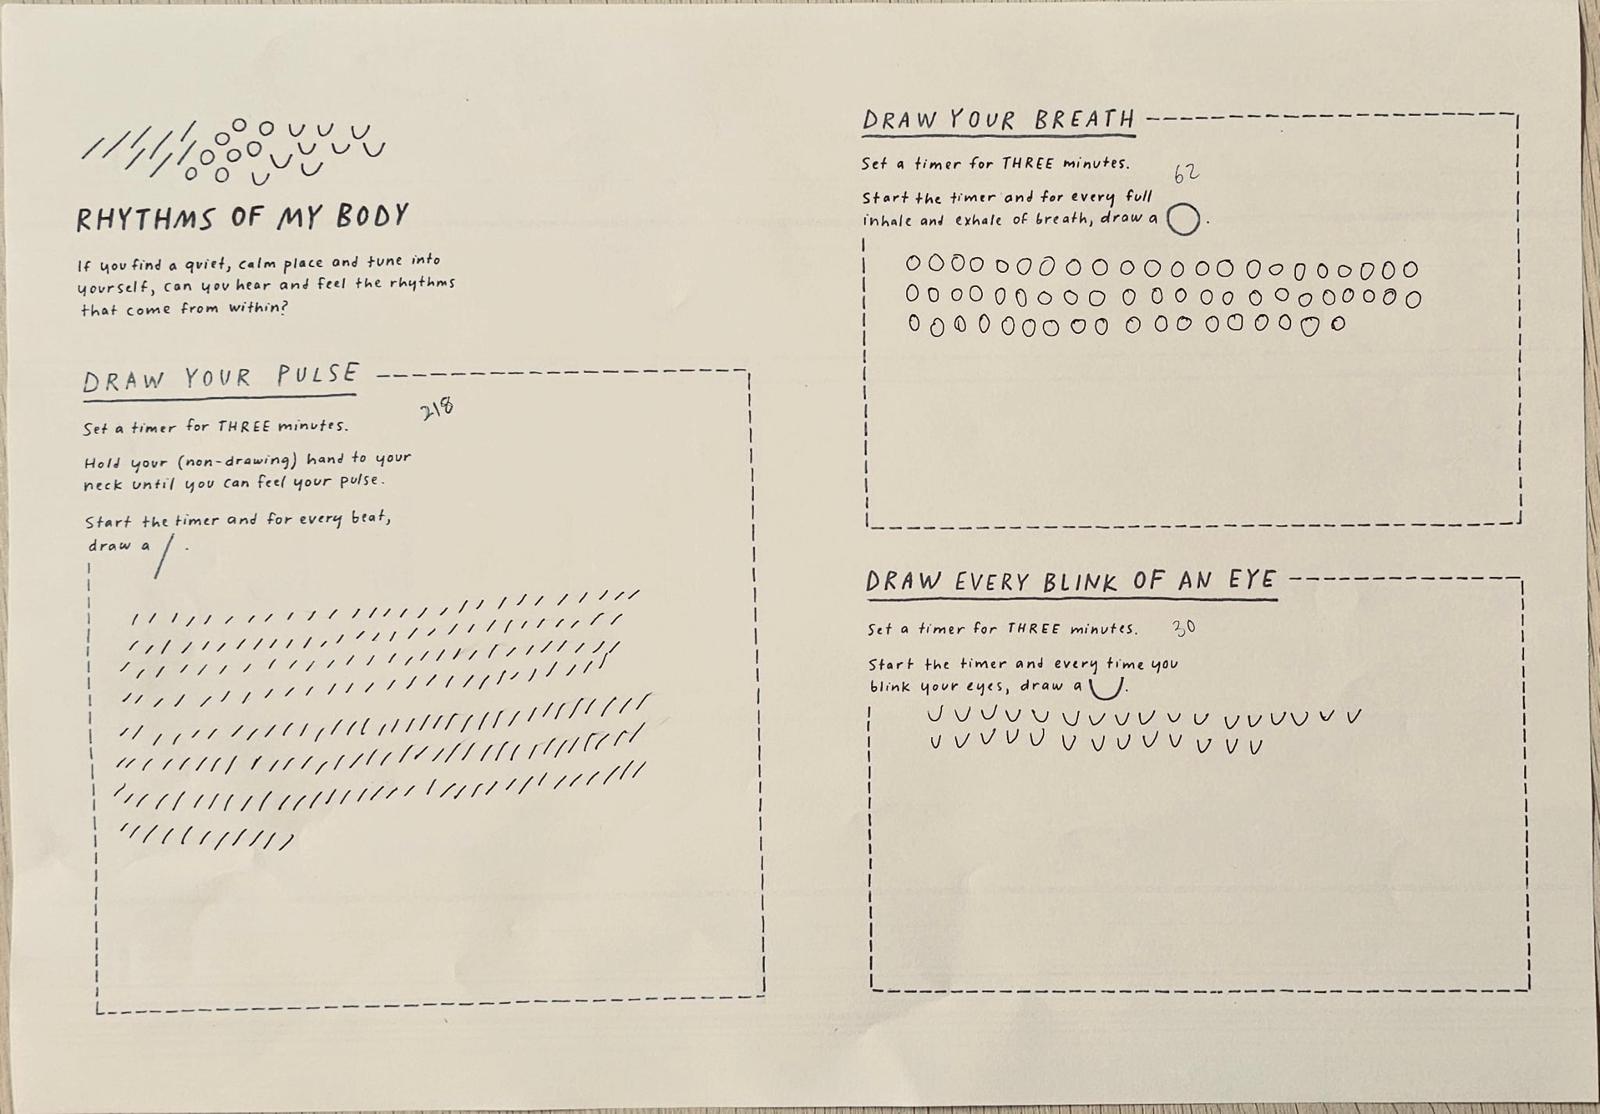 RHYTHMS OF MY BODY
If you find a quiet, calm place and tune into
yourself, can you hear and feel the rhythms
that come from within?
DRAW YOUR PULSE
218
Set a timer for THREE minutes.
Hold your (non-drawing) hand to your
neck until you can feel your pulse.
Start the timer and for every beat,
draw a / .
DRAW YOUR BREATH
Set a timer for THREE minutes.
62
Start the timer and for every full
inhale and exhale of breath, draw a ◯ .
DRAW EVERY BLINK OF AN EYE
Set a timer for THREE minutes. 30
Start the timer and every time you
blink your eyes, draw a ◡ .